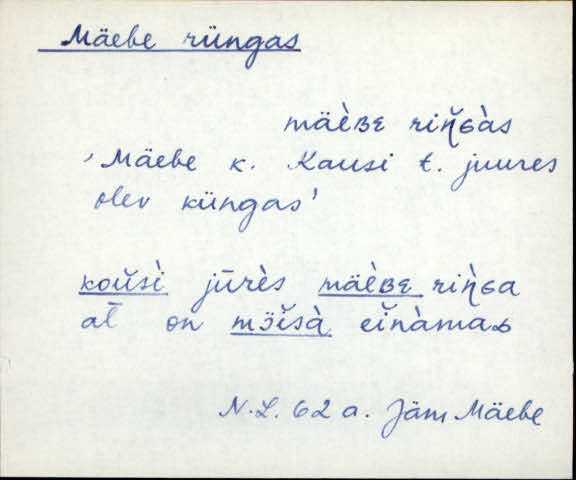 Mäebe rüngas
mäèʙᴇ riŋ̆ɢàs
'Mäebe k. Kausi t. juures
olev küngas'
koŭsì jūrès mäèʙᴇ riŋ̀ɢa
at̄ on mɔ̈ĭsà eĭnàmas
N.L. 62 a. Jäm Mäebe